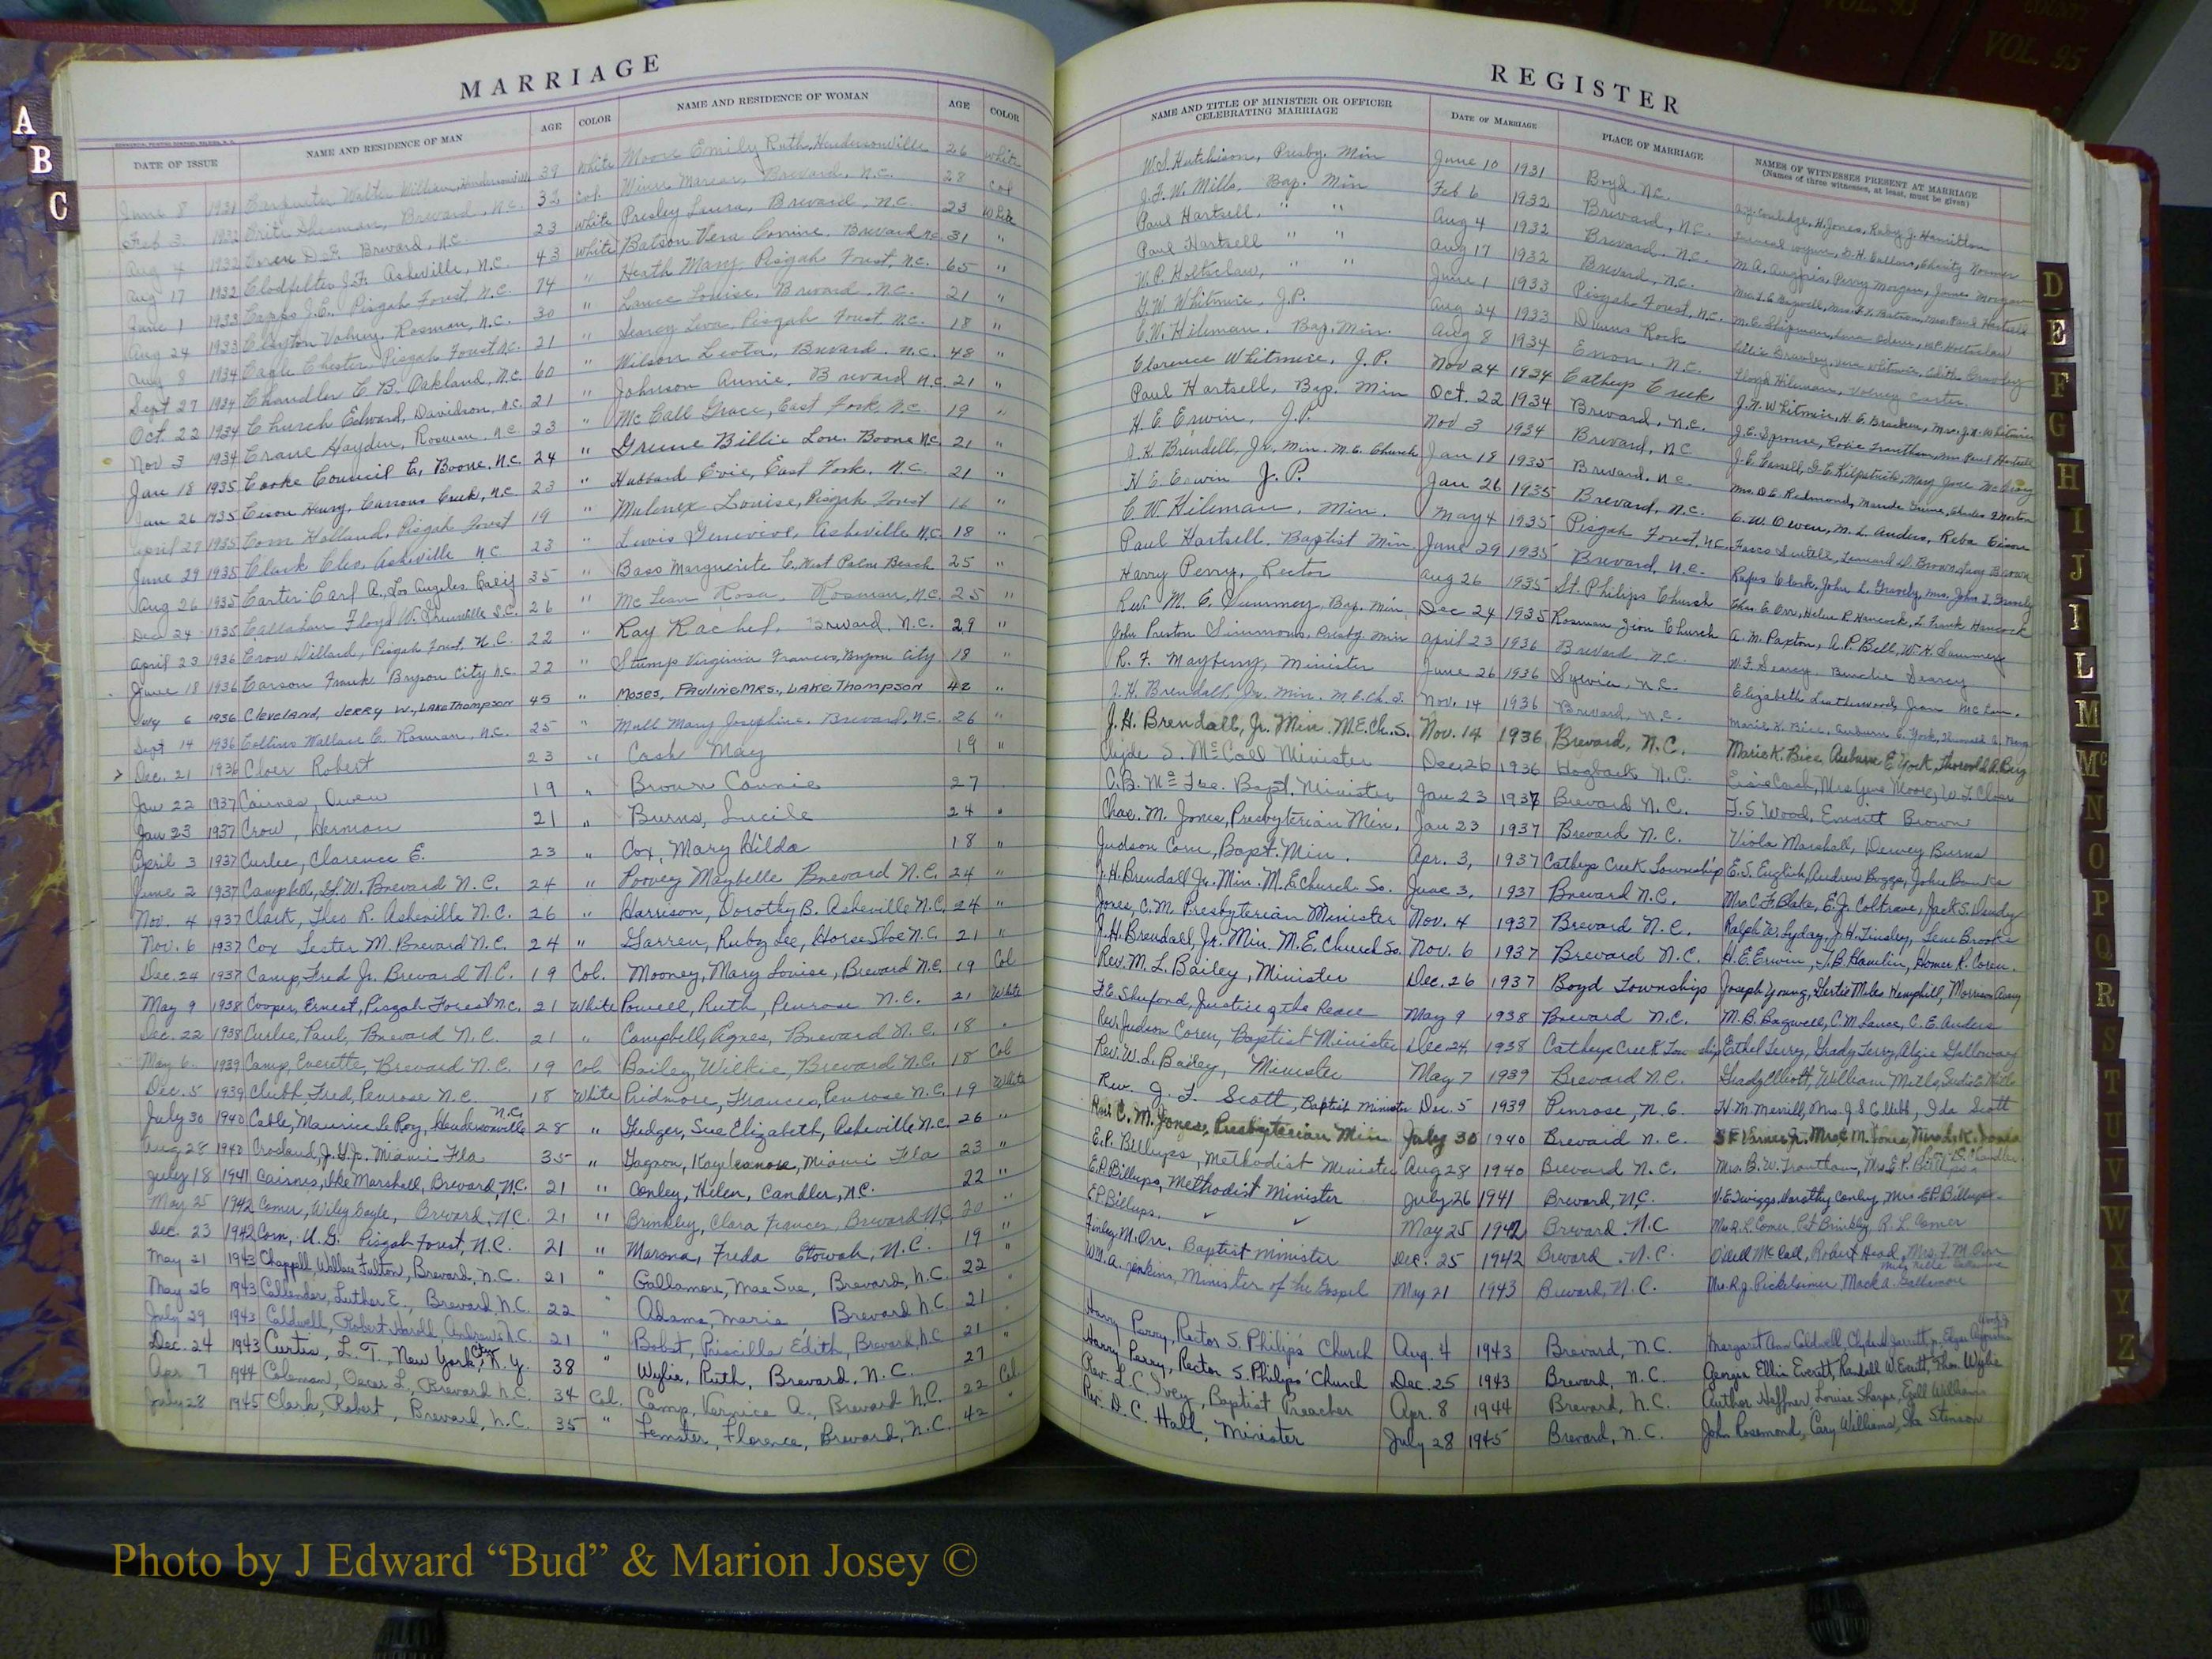 MARRIAGE
DATE OF ISSUE NAME AND RESIDENCE OF MAN AGE COLOR NAME AND RESIDENCE OF WOMAN AGE COLOR
June 8 1931 Carpenter Walter William, Hendersonville 39 White Moore Emily Ruth, Hendersonville 26 White
Feb 3 1932 Sherman, Brevard, N.C. 32 Col. Brevard, N.C. 28 Col
Aug 4 1932 Brevard, N.C. 23 White Presley Laura, Brevard, N.C. 23 White
Aug 17 1932 Clodfelter J.F. Asheville, N.C. 43 White Batson Vera Corrine, Brevard N.C. 31 "
June 1 1933 Capps J.C. Pisgah Forest, N.C. 74 " Heath Mary, Pisgah Forest, N.C. 65 "
Aug 24 1933 Clayton Volney, Rosman, N.C. 30 " Lance Louise, Brevard, N.C. 21 "
Aug 8 1934 Cagle Chester, Pisgah Forest N.C. 21 " Searcy Leva, Pisgah Forest, N.C. 18 "
Sept 27 1934 Chandler C.B. Oakland, N.C. 60 " Wilson Leota, Brevard, N.C. 48 "
Oct. 22 1934 Church Edward, Davidson, N.C. 21 " Johnson Annie, Brevard N.C. 21 "
Nov 3 1934 Crane Hayden, Rosman, N.C. 23 " McCall Grace, East Fork, N.C. 19 "
Jan 18 1935 Cooke Council C, Boone, N.C. 24 " Greene Billie Lou, Boone N.C. 21 "
Jan 26 1935 Cison Henry, Carsons Creek, N.C. 23 " Hubbard Evie, East Fork, N.C. 21 "
April 27 1935 Corn Holland, Pisgah Forest 19 " Mulenex Louise, Pisgah Forest 16 "
June 29 1935 Clark Cleo, Asheville N.C. 23 " Lewis Genevive, Asheville N.C. 18 "
Aug 26 1935 Carter Earl A, Los Angeles, Calif 35 " Bass Marguerite C, West Palm Beach 25 "
Dec 24 1935 Callahan Floyd W. Greenville S.C. 26 " McLean Rosa, Rosman, N.C. 25 "
April 23 1936 Crow Dillard, Pisgah Forest, N.C. 22 " Ray Rachel, Brevard, N.C. 29 "
June 18 1936 Carson Frank Bryson City N.C. 22 " Stump Virginia Frances, Bryson City 18 "
July 6 1936 CLEVELAND, JERRY W., LAKE THOMPSON 45 " MOSES, PAULINE MRS., LAKE THOMPSON 42 "
Sept 14 1936 Collins Wallace C. Rosman, N.C. 25 " Mull Mary Josephine, Brevard, N.C. 26 "
Dec. 21 1936 Cloer Robert 23 " Cash May 19 "
Jan 22 1937 Cairnes, Owen 19 " Brown Connie 27
Jan 23 1937 Crow, Herman 21 " Burns, Lucile 24 "
April 3 1937 Curlee, Clarence E. 23 " Cox, Mary Hilda 18 "
June 2 1937 Campbell, W. Brevard N.C. 24 " Poovey Maybelle Brevard N.C. 24 "
Nov. 4 1937 Clark, Theo R. Asheville N.C. 26 " Harrison, Dorothy B. Asheville N.C. 24 "
Nov. 6 1937 Cox Lester M. Brevard N.C. 24 " Garren, Ruby Lee, Horse Shoe N.C. 21 "
Dec. 24 1937 Camp, Fred Jr. Brevard N.C. 19 Col. Mooney, Mary Louise, Brevard N.C. 19 Col
May 9 1938 Cooper, Ernest, Pisgah Forest N.C. 21 White Powell, Ruth, Penrose N.C. 21 White
Dec. 22 1938 Curlee, Paul, Brevard N.C. 21 " Campbell, Agnes, Brevard N.C. 18 "
May 6 1939 Camp, Everette, Brevard N.C. 19 Col. Bailey, Wilkie, Brevard N.C. 18 Col
Dec. 5 1939 Clubb, Fred, Penrose N.C. 18 White Pridmore, Frances, Penrose N.C. 19 White
July 30 1940 Cable, Maurice LeRoy, Hendersonville N.C. 28 " Gudger, Sue Elizabeth, Asheville N.C. 26 "
Aug 28 1940 Crosland, J. Miami Fla 35 " Gagnon, Kay Leanore, Miami Fla 23 "
July 18 1941 Cairnes, Ike Marshall, Brevard, N.C. 21 " Conley, Helen, Candler, N.C. 22 "
May 25 1942 Comer, Wiley Gayle, Brevard, N.C. 21 " Brinkley, Clara Frances Brevard N.C. 20 "
Dec. 23 1942 Corn, U.G. Pisgah Forest, N.C. 21 " Marona, Freda Etowah, N.C. 19 "
May 21 1943 Chappell, Wallace Felton, Brevard, N.C. 21 " Gallamore, Mae Sue, Brevard, N.C. 22 "
May 26 1943 Callender, Luther E., Brevard N.C. 22 " Adams, Marie, Brevard N.C. 21 "
July 29 1943 Caldwell, Robert Harold, Andrews N.C. 21 " Bobst, Priscilla Edith, Brevard, N.C. 21 "
Dec. 24 1943 Curtis, L.T., New York City, N.Y. 38 " Wylie, Ruth, Brevard, N.C. 27
Apr. 7 1944 Coleman, Oscar L., Brevard N.C. 34 Col. Camp, Vernice A., Brevard N.C. 22 Col.
July 28 1945 Clark, Robert, Brevard, N.C. 35 " Femster, Florence, Brevard, N.C. 42 "
REGISTER
NAME AND TITLE OF MINISTER OR OFFICER CELEBRATING MARRIAGE DATE OF MARRIAGE PLACE OF MARRIAGE NAMES OF WITNESSES PRESENT AT MARRIAGE
(Names of three witnesses, at least, must be given)
W.S. Hutchison, Presby. Min June 10 1931 Boyd N.C. H. Jones, Ruby J. Hamilton
J.F.W. Mills, Bap. Min Feb 6 1932 Brevard, N.C. Charity Norman
Paul Hartsell, " " Aug 4 1932 Brevard, N.C. Perry Morgan, James Morgan
Paul Hartsell " " Aug 17 1932 Brevard, N.C. Mrs. Paul Hartsell
W.P. Holtzclaw, " " June 1 1933 Pisgah Forest, N.C. M.C. Shipman, W.P. Holtzclaw
G.W. Whitmire, J.P. Aug 24 1933 Dunns Rock
C.W. Hileman, Bap. Min. Aug 8 1934 Enon, N.C. Floyd Hileman, Volney Carter
Clarence Whitmire, J.P. Nov 24 1934 Catheys Creek J.N. Whitmire, H.E. Bracken, Mrs. J.N. Whitmire
Paul Hartsell, Bap. Min Oct. 22 1934 Brevard, N.C. J.E. Sprouse, Mrs Paul Hartsell
H.E. Erwin, J.P. Nov 3 1934 Brevard, N.C. G.E. Kilpatrick, Mary Jane
J.H. Brendell, Jr. Min. M.E. Church Jan 18 1935 Brevard, N.C. Mrs. D.C. Redmond, Maude Greene, Charles Norton
H.E. Erwin J.P. Jan 26 1935 Brevard, N.C. C.W. Owen, M.L. Anders, Reba Cison
C.W. Hileman, Min. May 4 1935 Pisgah Forest, N.C. Leonard D. Brown, Brown
Paul Hartsell, Baptist Min. June 29 1935 Brevard, N.C. Rufus Clark, John L. Gravely, Mrs. John L. Gravely
Harry Perry, Rector Aug 26 1935 St. Philips Church Chas. E. Orr, Helen P. Hancock, L. Frank Hancock
Rev. M.C. Summey, Bap. Min. Dec 24 1935 Rosman Zion Church A.M. Paxton, A.P. Bell, W.H. Summey
John Preston Simmons, Presby. Min April 23 1936 Brevard N.C. W.F. Searcy, Searcy
R.F. Mayberry, Minister June 26 1936 Sylvia, N.C. Elizabeth Leatherwood, Jean
J.H. Brendall, Jr. Min. M.E.Ch.S. Nov. 14 1936 Brevard, N.C.
J.H. Brendall, Jr. Min. M.E.Ch.S. Nov. 14 1936 Brevard, N.C. Marie K. Bice, Auburn E. York, Thorwold A. Berg
Clyde S. McCall Minister Dec. 26 1936 Hogback N.C. Cash, Mrs Moore, W.T. Cloer
Bapt. Minister Jan 23 1937 Brevard N.C. T.S. Wood, Emmitt Brown
Chas. M. Jones, Presbyterian Min. Jan 23 1937 Brevard N.C. Viola Marshall, Dewey Burns
Judson Corn, Bapt. Min. Apr. 3, 1937 Catheys Creek Township E.S. English, Andrew Boggs, John Banks
J.H. Brendall Jr. Min. M.E. Church So. June 3, 1937 Brevard N.C. Mrs. C.F. Blake, E.J. Coltrane, Jack S. Dendy
Jones, C.M. Presbyterian Minister Nov. 4 1937 Brevard N.C. Ralph W. Lyday, J.H. Tinsley, Lene Brooks
J.H. Brendall, Jr. Min. M.E. Church So. Nov. 6 1937 Brevard N.C. H.E. Erwin, T.B. Hamlin, Homer R. Coren.
Rev. M.L. Bailey, Minister Dec. 26 1937 Boyd Township Joseph Young, Gertie Miles Hemphill, Morrison Avery
F.E. Shuford, Justice of the Peace May 9 1938 Brevard N.C. M.B. Bagwell, C.M. Lance, C.E. Anders
Rev. Judson Coren, Baptist Minister Dec. 24, 1938 Catheys Creek Township Ethel Terry, Grady Terry, Algie Galloway
Rev. W.L. Bailey, Minister May 7 1939 Brevard N.C. Elliott, William Mills, Mills
Rev. J.F. Scott, Baptist Minister Dec. 5 1939 Penrose, N.C. H.M. Merrill, Mrs. J.S. Clubb, Ida Scott
Rev. C.M. Jones, Presbyterian Min July 30 1940 Brevard N.C. Mrs. C.M. Jones, Mrs. L.K. Jones
E.P. Billups, Methodist Minister Aug 28 1940 Brevard N.C. Mrs. B.W. Trantham, Mrs. E.P. Billups, Chandler
E.P. Billups, Methodist Minister July 26 1941 Brevard, N.C. V.E. Twiggs, Dorothy Conley, Mrs. E.P. Billups
E.P. Billups. May 25 1942 Brevard N.C. Mrs. R.L. Comer, Pat Brinkley, R.L. Comer
Finley M. Orr, Baptist Minister Dec. 25 1942 Brevard N.C. Odell McCall, Robert Head, Mrs. F.M. Orr
W.A. Jenkins, Minister of the Gospel May 21 1943 Brevard, N.C. Mrs. R.J. Pickelsimer Mack A. Gallamore
Harry Perry, Rector S. Philip's Church Aug. 4 1943 Brevard, N.C. Margaret Ann Caldwell, Clyde
Harry Perry, Rector S. Philips' Church Dec. 25 1943 Brevard, N.C. Georgia Ellis Everett, Randall W. Everett, Thos. Wylie
Rev. L.C. Ivey, Baptist Preacher Apr. 8 1944 Brevard, N.C. Author Heffner, Louise Sharps, Ezell Williams
Rev. D.C. Hall, Minister July 28 1945 Brevard, N.C. John Rosemond, Cary Williams, Ila Stinson
A
B
C
D
E
F
G
H
I
J
I
L
M
Mc
N
O
P
Q
R
S
T
U
V
W
X
Y
Z
VOL. 95
Photo by J Edward “Bud” & Marion Josey ©